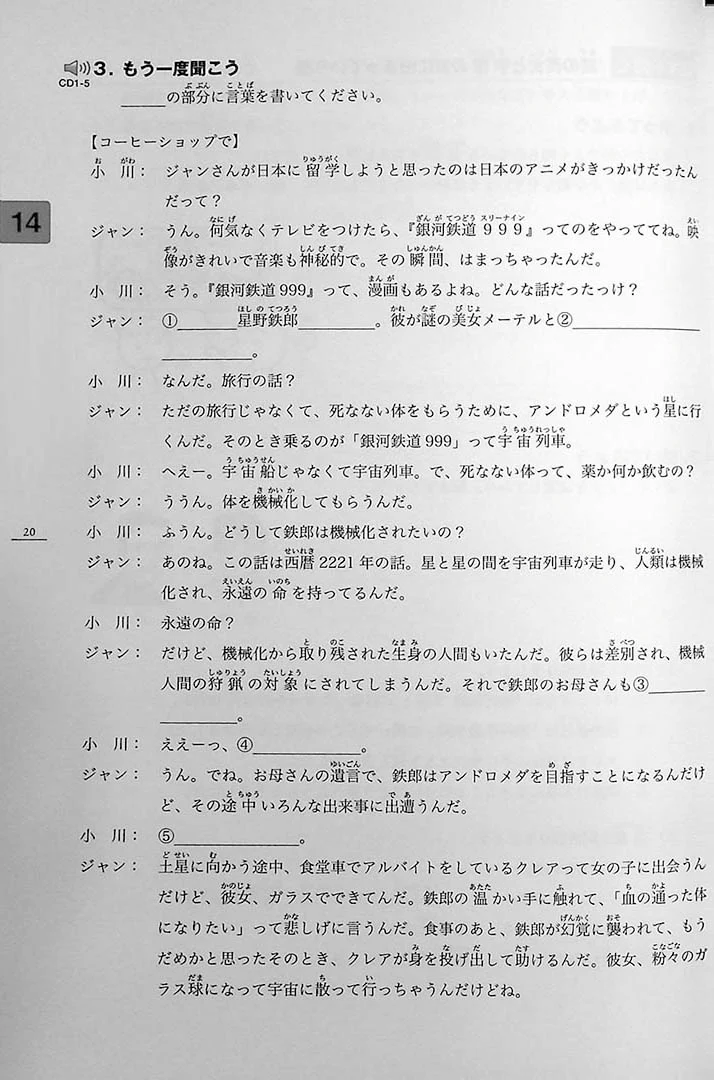 3. もう一度聞こう
CD1-5
＿＿＿の部分に言葉を書いてください。
【コーヒーショップで】
小川： ジャンさんが日本に留学しようと思ったのは日本のアニメがきっかけだったん
だって？
14
ジャン： うん。何気なくテレビをつけたら、『銀河鉄道９９９』ってのをやっててね。映
像がきれいで音楽も神秘的で。その瞬間、はまっちゃったんだ。
小川： そう。『銀河鉄道999』って、漫画もあるよね。どんな話だったっけ？
ジャン： ①＿＿＿＿星野鉄郎＿＿＿＿＿。彼が謎の美女メーテルと②＿＿＿＿＿＿＿＿
＿＿＿＿＿＿。
小川： なんだ。旅行の話？
ジャン： ただの旅行じゃなくて、死なない体をもらうために、アンドロメダという星に行
くんだ。そのとき乗るのが「銀河鉄道999」って宇宙列車。
小川： へえー。宇宙船じゃなくて宇宙列車。で、死なない体って、薬か何か飲むの？
ジャン： ううん。体を機械化してもらうんだ。
20
小川： ふうん。どうして鉄郎は機械化されたいの？
ジャン： あのね。この話は西暦2221年の話。星と星の間を宇宙列車が走り、人類は機械
化され、永遠の命を持ってるんだ。
小川： 永遠の命？
ジャン： だけど、機械化から取り残された生身の人間もいたんだ。彼らは差別され、機械
人間の狩猟の対象にされてしまうんだ。それで鉄郎のお母さんも③＿＿＿＿
＿＿＿＿＿。
小川： ええーっ、④＿＿＿＿＿＿＿。
ジャン： うん。でね。お母さんの遺言で、鉄郎はアンドロメダを目指すことになるんだけ
ど、その途中いろんな出来事に出遭うんだ。
小川： ⑤＿＿＿＿＿＿＿＿。
ジャン： 土星に向かう途中、食堂車でアルバイトをしているクレアって女の子に出会うん
だけど、彼女、ガラスでできてんだ。鉄郎の温かい手に触れて、「血の通った体
になりたい」って悲しげに言うんだ。食事のあと、鉄郎が幻覚に襲われて、もう
だめかと思ったそのとき、クレアが身を投げ出して助けるんだ。彼女、粉々のガ
ラス球になって宇宙に散って行っちゃうんだけどね。